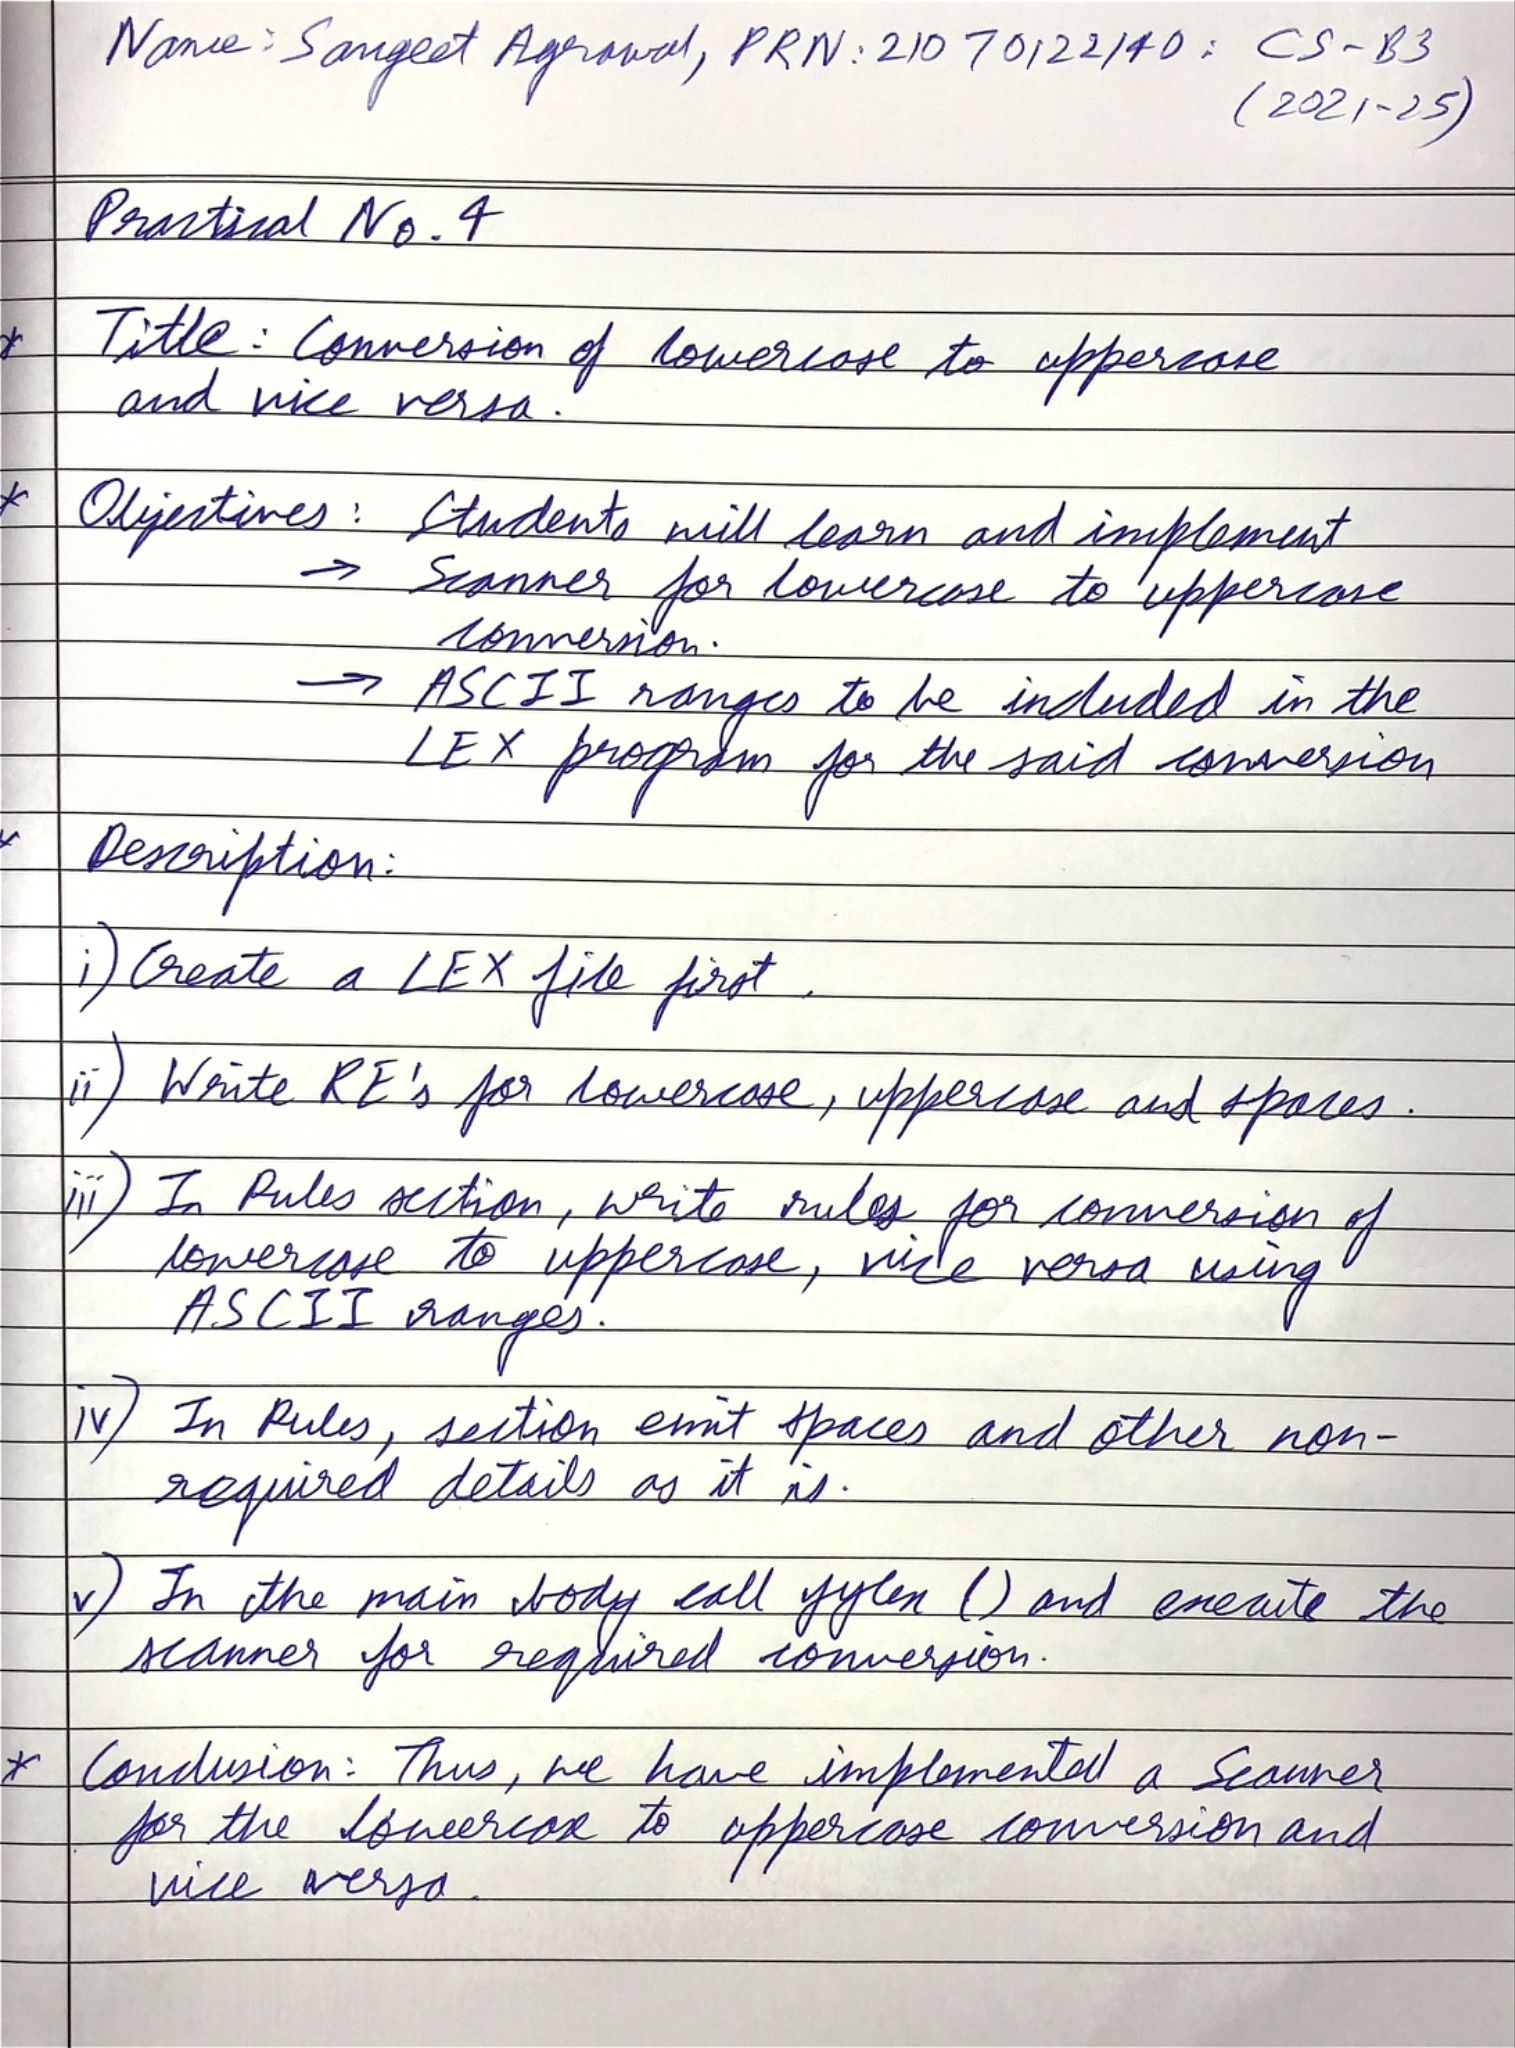 Name: Sangeet Agrawal, PRN: 21070122140: CS-B3
(2021-25)
Practical No. 4
* Title: Conversion of lowercase to uppercase
and vice versa.
* Objectives: Students will learn and implement
→ Scanner for lowercase to uppercase
conversion.
→ ASCII ranges to be included in the
LEX program for the said conversion
* Description:
i) Create a LEX file first.
ii) Write RE's for lowercase, uppercase and spaces.
iii) In Rules section, write rules for conversion of
lowercase to uppercase, vice versa using
ASCII ranges.
iv) In Rules, section emit spaces and other non-
required details as it is.
v) In the main body call yylex () and execute the
scanner for required conversion.
* Conclusion: Thus, we have implemented a Scanner
for the lowercase to uppercase conversion and
vice versa.